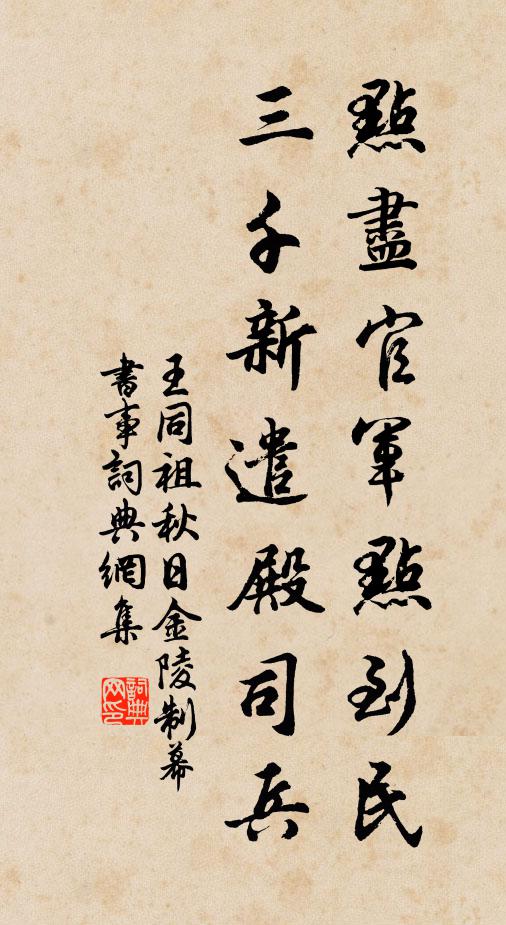 點盡官軍點到民
三千新遣殿司兵
王同祖秋日金陵制幕
書事詞典網集
詞典
网印